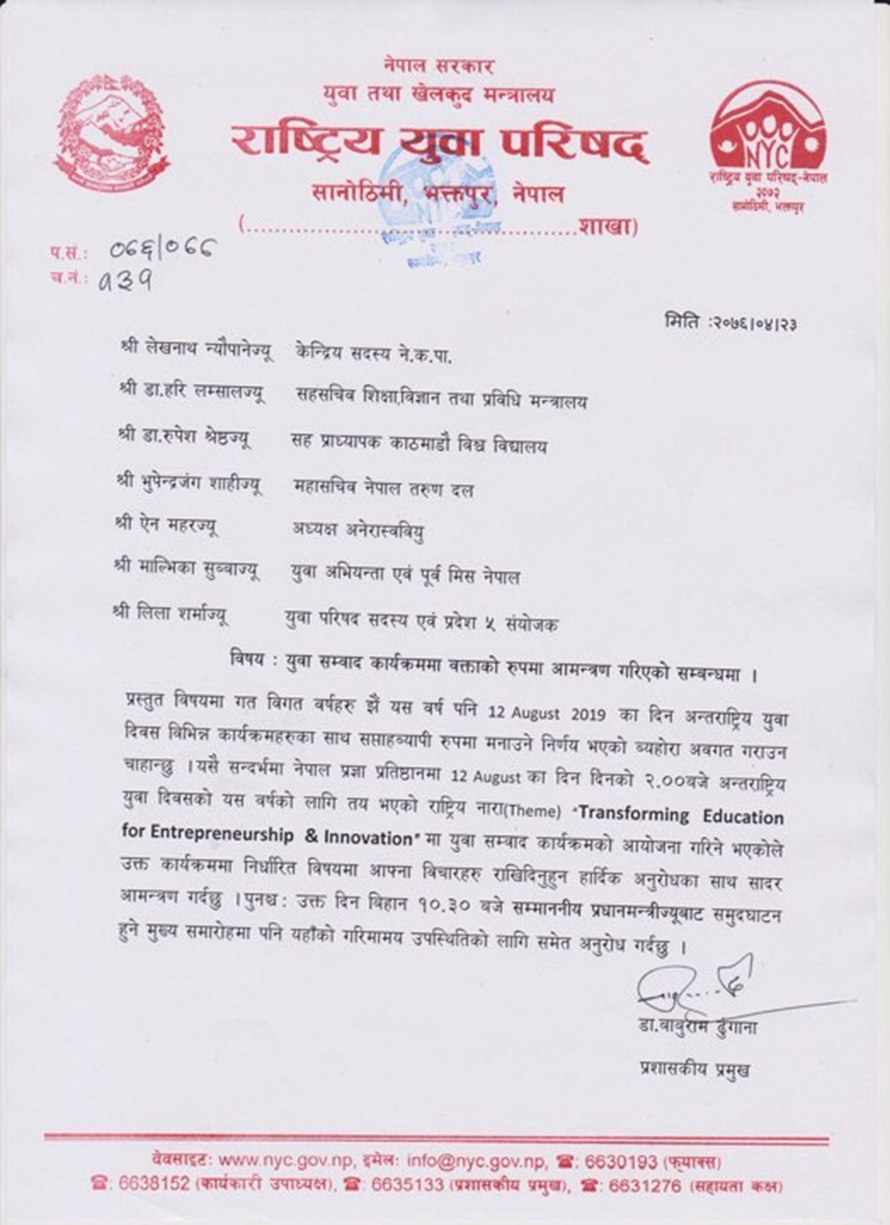 नेपाल सरकार
युवा तथा खेलकुद मन्त्रालय
राष्ट्रिय युवा परिषद्
सानोठिमी, भक्तपुर, नेपाल
(.......................................................शाखा)
NYC
राष्ट्रिय युवा परिषद्-नेपाल
२०७२
सानोठिमी, भक्तपुर
प.सं.: ०७६/०७७
च.नं.: १३१
मिति :२०७६।०४।२३
श्री लेखनाथ न्यौपानेज्यू केन्द्रिय सदस्य ने.क.पा.
श्री डा.हरि लम्सालज्यू सहसचिव शिक्षा,विज्ञान तथा प्रविधि मन्त्रालय
श्री डा.रुपेश श्रेष्ठज्यू सह प्राध्यापक काठमाडौ विश्व विद्यालय
श्री भुपेन्द्रजंग शाहीज्यू महासचिव नेपाल तरुण दल
श्री ऐन महरज्यू अध्यक्ष अनेरास्ववियु
श्री माल्भिका सुब्बाज्यू युवा अभियन्ता एवं पूर्व मिस नेपाल
श्री लिला शर्माज्यू युवा परिषद सदस्य एवं प्रदेश ५ संयोजक
विषय : युवा सम्वाद कार्यक्रममा वक्ताको रुपमा आमन्त्रण गरिएको सम्बन्धमा ।
प्रस्तुत विषयमा गत विगत वर्षहरु झैं यस वर्ष पनि 12 August 2019 का दिन अन्तराष्ट्रिय युवा
दिवस विभिन्न कार्यक्रमहरुका साथ सप्ताहब्यापी रुपमा मनाउने निर्णय भएको ब्यहोरा अवगत गराउन
चाहान्छु ।यसै सन्दर्भमा नेपाल प्रज्ञा प्रतिष्ठानमा 12 August का दिन दिनको २.००बजे अन्तराष्ट्रिय
युवा दिवसको यस वर्षको लागि तय भएको राष्ट्रिय नारा(Theme) "Transforming Education
for Entrepreneurship & Innovation" मा युवा सम्वाद कार्यक्रमको आयोजना गरिने भएकोले
उक्त कार्यक्रममा निर्धारित विषयमा आफ्ना विचारहरु राखिदिनुहुन हार्दिक अनुरोधका साथ सादर
आमन्त्रण गर्दछु ।पुनश्च: उक्त दिन विहान १०.३० बजे सम्माननीय प्रधानमन्त्रीज्यूबाट समुदघाटन
हुने मुख्य समारोहमा पनि यहाँको गरिमामय उपस्थितिको लागि समेत अनुरोध गर्दछु ।
डा.बाबुराम ढुंगाना
प्रशासकीय प्रमुख
वेवसाइट: www.nyc.gov.np, इमेल: info@nyc.gov.np, ☎: 6630193 (फ्याक्स)
☎: 6638152 (कार्यकारी उपाध्यक्ष), ☎: 6635133 (प्रशासकीय प्रमुख), ☎: 6631276 (सहायता कक्ष)